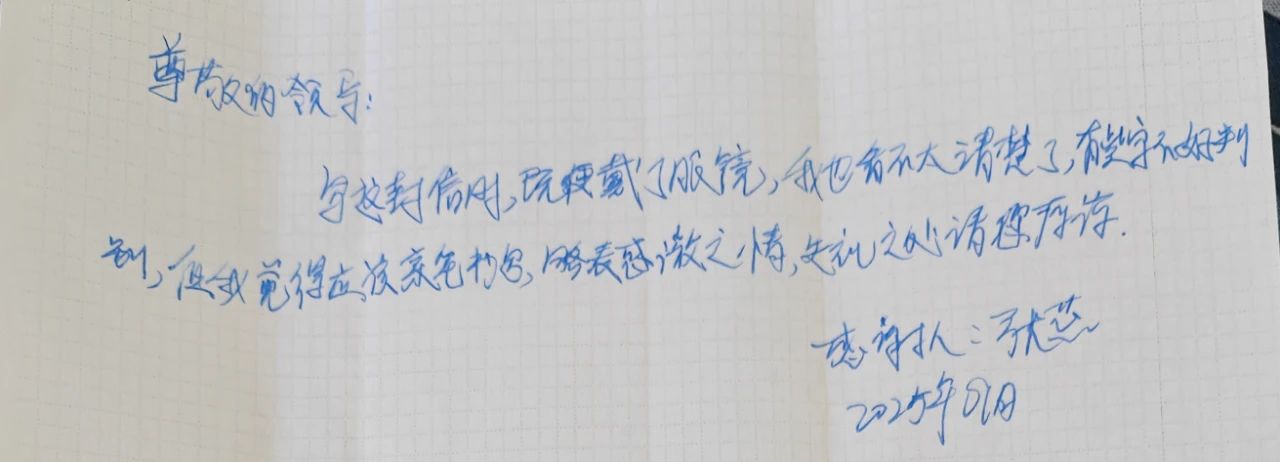 尊敬的领导:
写这封信时,既便戴了眼镜,我也看不太清楚了,有些字不好判
别,但我觉得应该亲笔书写,略表感激之情,失礼之处请您原谅.
感谢人:
2025年9月